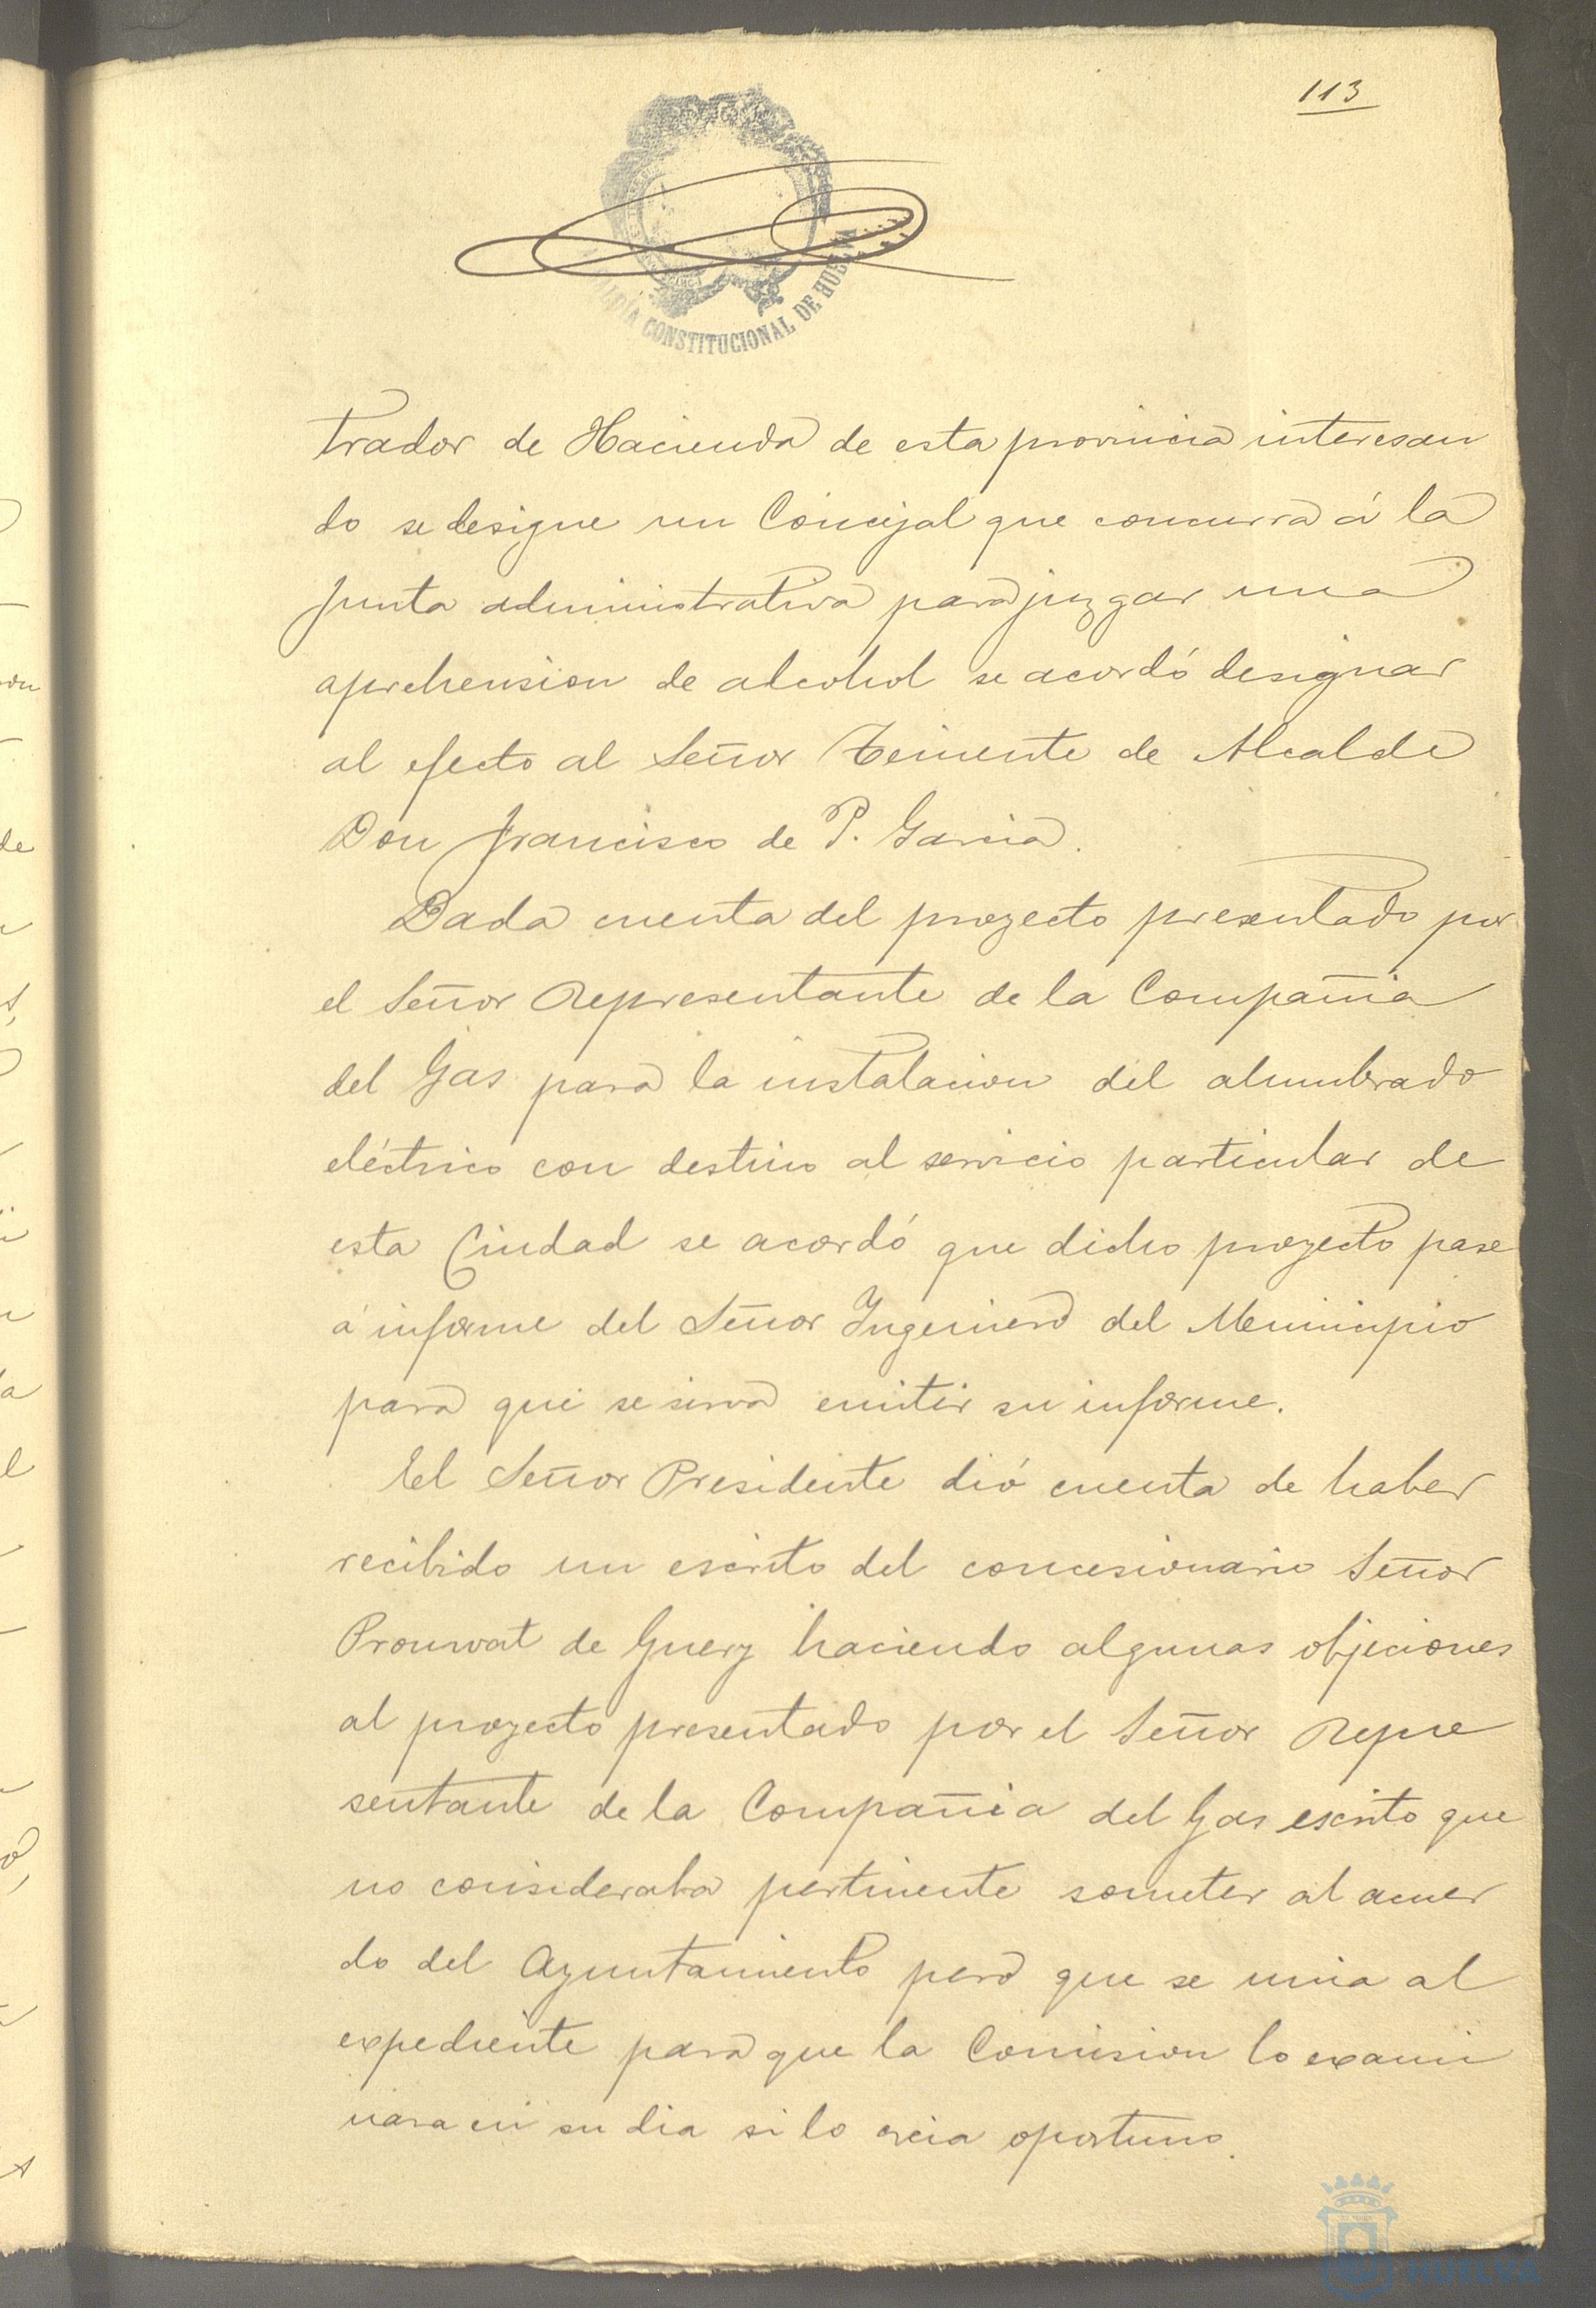 113
ALCALDÍA CONSTITUCIONAL DE HUELVA
trador de Hacienda de esta provincia interesan
do se designe un Concejal que concurra á la
Junta administrativa para juzgar una
aprehension de alcohol se acordó designar
al efecto al Señor Teniente de Alcalde
Don Francisco de P. Garcia.
Dada cuenta del proyecto presentado por
el Señor Representante de la Compañia
del Gas para la instalacion del alumbrado
eléctrico con destino al servicio particular de
esta Ciudad se acordó que dicho proyecto pase
á informe del Señor Ingeniero del Municipio
para que se sirva emitir su informe.
El Señor Presidente dió cuenta de haber
recibido un escrito del concesionario Señor
de Guery haciendo algunas objeciones
al proyecto presentado por el Señor Repre
sentante de la Compañia del Gas escrito que
no consideraba pertinente someter al acuer
do del Ayuntamiento pero que se unia al
expediente para que la Comision lo exami
nara en su dia si lo creia oportuno.
HUELVA